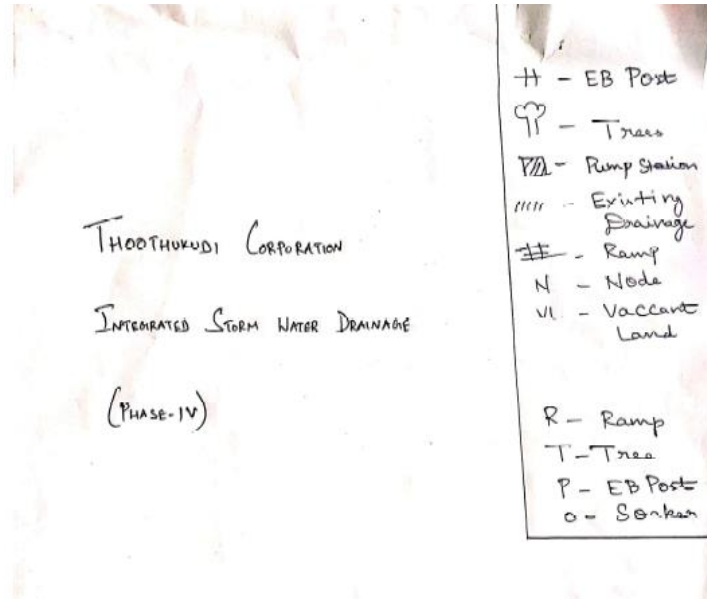 THOOTHUKUDI CORPORATION
INTEGRATED STORM WATER DRAINAGE
(PHASE-IV)
- EB Post
- Trees
- Pump Station
- Existing
Drainage
- Ramp
N - Node
VL - Vaccant
Land
R - Ramp
T - Tree
P - EB Post
O -